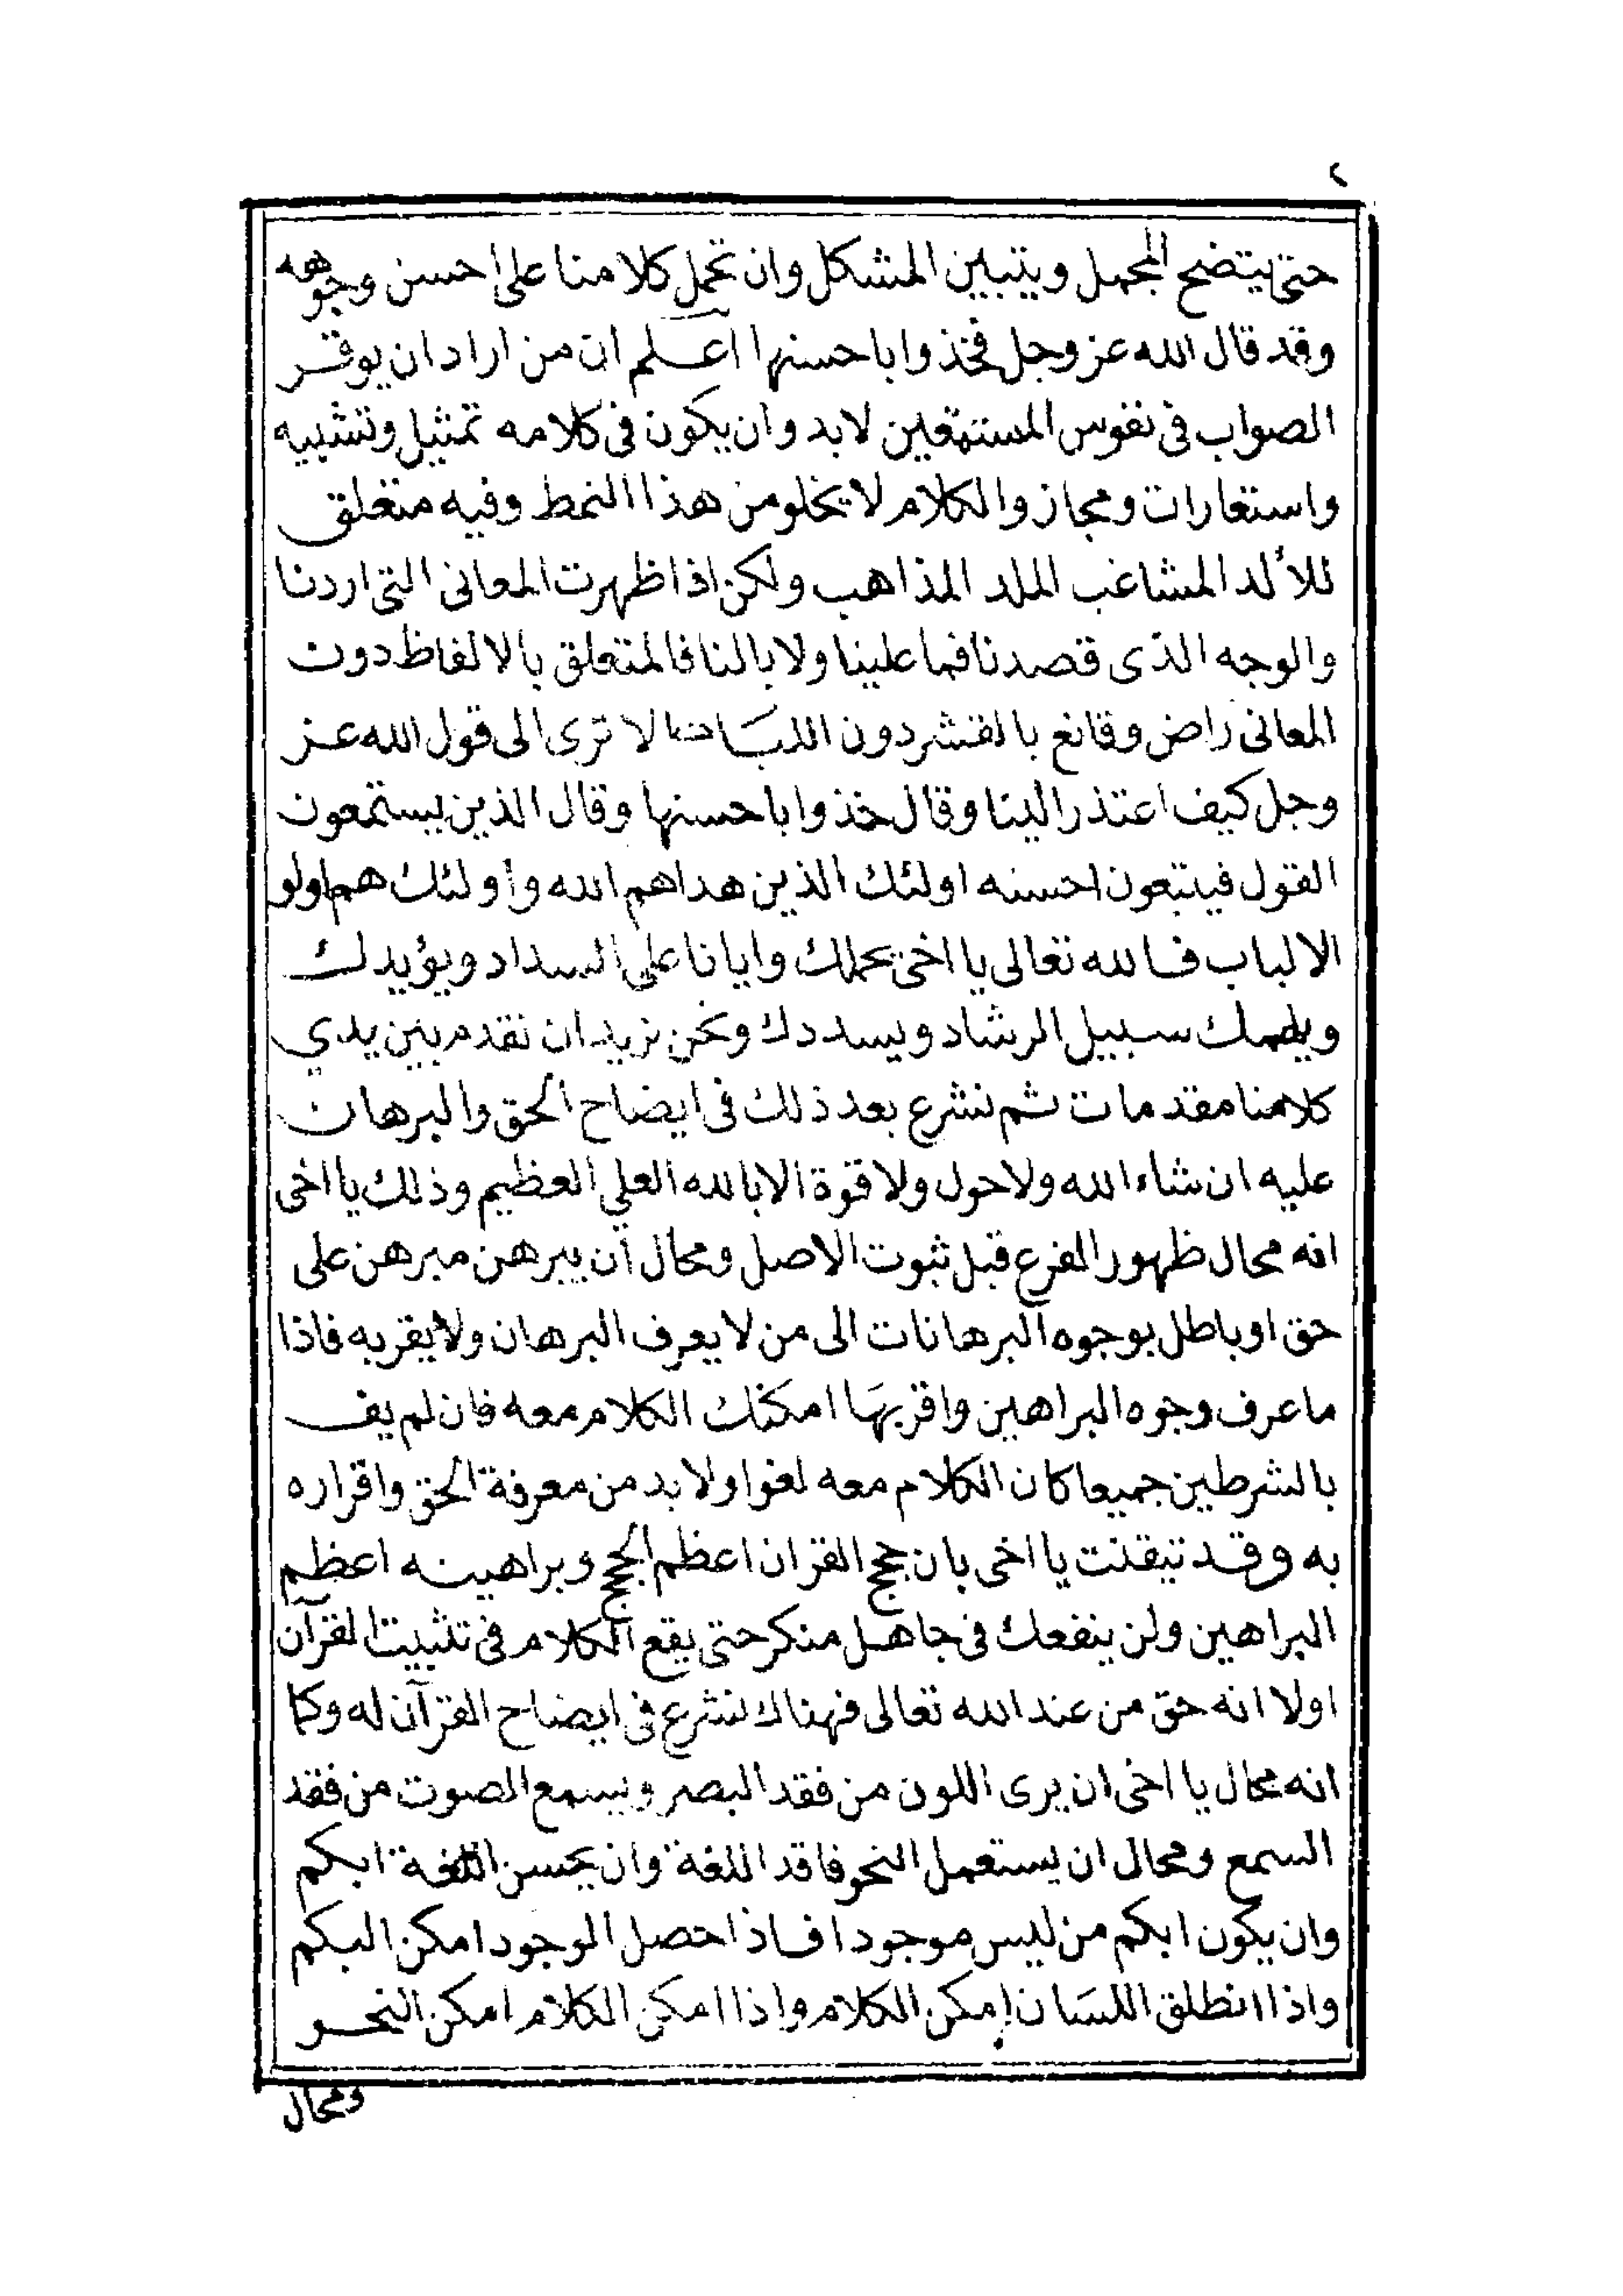 ٢
حتى يتضح المجمل ويتبين المشكل وان تحمل كلامنا على احسن وجوهه
وقد قال الله عز وجل فخذوا باحسنها اعلم ان من اراد ان يوقر
الصواب في نفوس المستمعين لابد وان يكون في كلامه تمثيل وتشبيه
واستعارات ومجاز والكلام لا يخلو من هذا النمط وفيه متعلق
للألد المشاغب الملد المذاهب ولكن اذا ظهرت المعانى التى اردنا
والوجه الذى قصدنا فما علينا ولا بالنا فالمتعلق بالالفاظ دون
المعانى راض وقانع بالقشر دون اللباب الا ترى الى قول الله عز
وجل كيف اعتذر الينا وقال خذوا باحسنها وقال الذين يستمعون
القول فيتبعون احسنه اولئك الذين هداهم الله واولئك هم اولو
الالباب فالله تعالى يا اخى يحملك وايانا على السداد ويؤيدك
ويلهمك سبيل الرشاد ويسددك ونحن نريد ان نقدم بين يدي
كلامنا مقدمات ثم نشرع بعد ذلك فى ايضاح الحق والبرهان
عليه ان شاء الله ولا حول ولا قوة الا بالله العلي العظيم وذلك يا اخى
انه محال ظهور الفرع قبل ثبوت الاصل ومحال أن يبرهن مبرهن على
حق او باطل بوجوه البرهانات الى من لا يعرف البرهان ولا يقر به فاذا
ما عرف وجوه البراهين واقر بها امكنك الكلام معه فان لم يف
بالشرطين جميعا كان الكلام معه لغوا ولابد من معرفة الحق واقراره
به وقد تيقنت يا اخى بان حجج القران اعظم الحجج وبراهينه اعظم
البراهين ولن ينفعك فى جاهل منكر حتى يقع الكلام فى تثبيت القرآن
اولا انه حق من عند الله تعالى فهناك نشرع فى ايضاح القرآن له وكما
انه محال يا اخى ان يرى اللون من فقد البصر ويسمع الصوت من فقد
السمع ومحال ان يستعمل النحو فاقد اللغة وان يحسن اللغة ابكم
وان يكون ابكم من ليس موجودا فاذا حصل الوجود امكن البكم
واذا انطلق اللسان امكن الكلام واذا امكن الكلام امكن النحو
ومحال